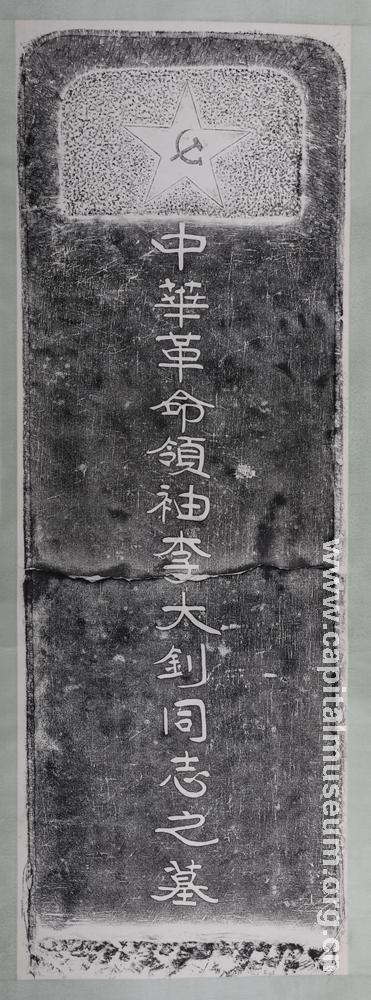 中華革命領袖李大釗同志之墓
www.capitalmuseum.org.cn